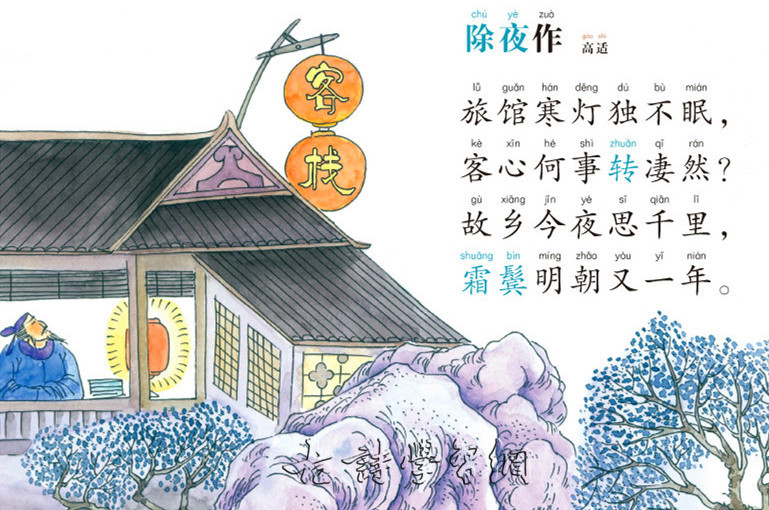 chú yè zuò
除夜作
gāo shì
高适
lǚ guǎn hán dēng dú bù mián
旅馆寒灯独不眠，
kè xīn hé shì zhuǎn qī rán
客心何事转凄然？
gù xiāng jīn yè sī qiān lǐ
故乡今夜思千里，
shuāng bìn míng zhāo yòu yī nián
霜鬓明朝又一年。
客
栈